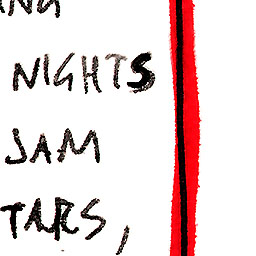 NIGHTS
JAM
TARS,